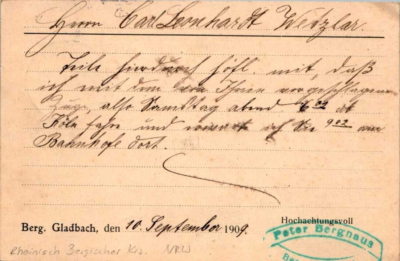 Herrn Carl Leonhardt Wetzlar.
Teile hierdurch höfl. mit, daß
ich mit dem von Ihnen vorgeschlagenen
Zuge, also Samstag abend 6.02 ab
Köln fahre und ich Sie 9.22 am
Bahnhofe dort.
Berg. Gladbach, den 10. September 1909.
Hochachtungsvoll
Peter Berghaus
Rheinisch Bergischer Krs. NRW